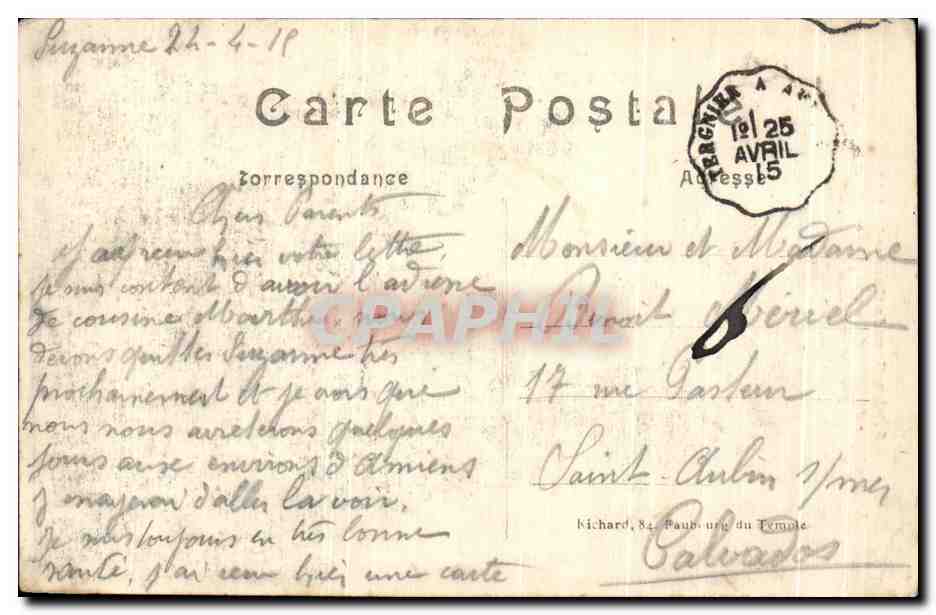 Suzanne 24-4-15
Carte Postale
TERGNIER A AM
1º/ 25
AVRIL
15
Correspondance
Adresse
Chers Parents
j'ai reçu hier votre lettre,
je suis content d'avoir l'adresse
de cousine Marthe, nous
devons quitter Suzanne très
prochainement et je crois que
nous nous arreterons quelques
jours aux environs d'Amiens
j'essayerai d'aller la voir.
Je suis toujours en très bonne
santé, j'ai reçu hier une carte
Monsieur et Madame
Benoit Mériel
17 rue Pasteur
Saint-Aubin s/mer
Calvados
Richard, 84, Faubourg du Temple
CPAPHIL